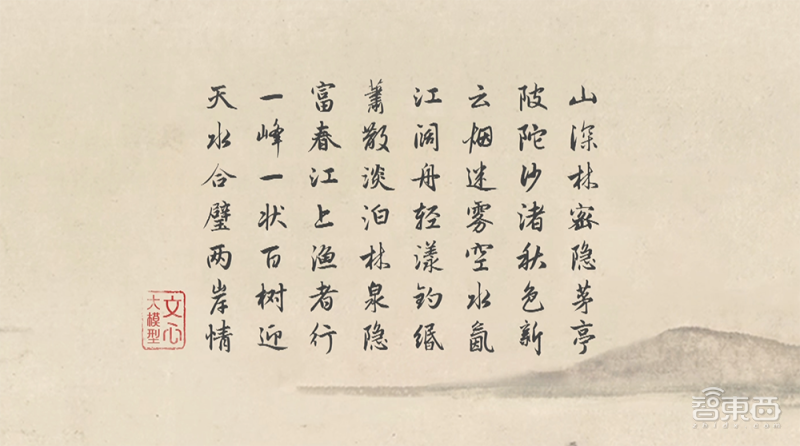 山深林密隐茅亭
陂陀沙渚秋色新
云烟迷雾空水氤
江阔舟轻漾钓缗
萧散淡泊林泉隐
富春江上渔者行
一峰一状百树迎
天水合璧两岸情
文心
大模型
智東西